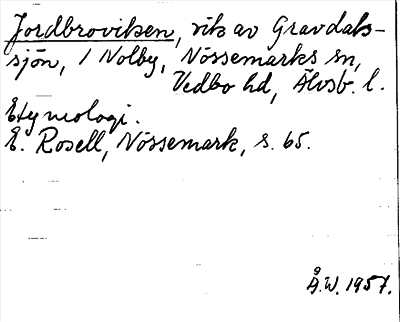 Jordbroviken, vik av Gravdals-
sjön, 1 Nolby, Nössemarks sn,
Vedbo hd, Älvsb. l.
Etymologi.
E. Rosell, Nössemark, s. 65.
Å.W. 1957.